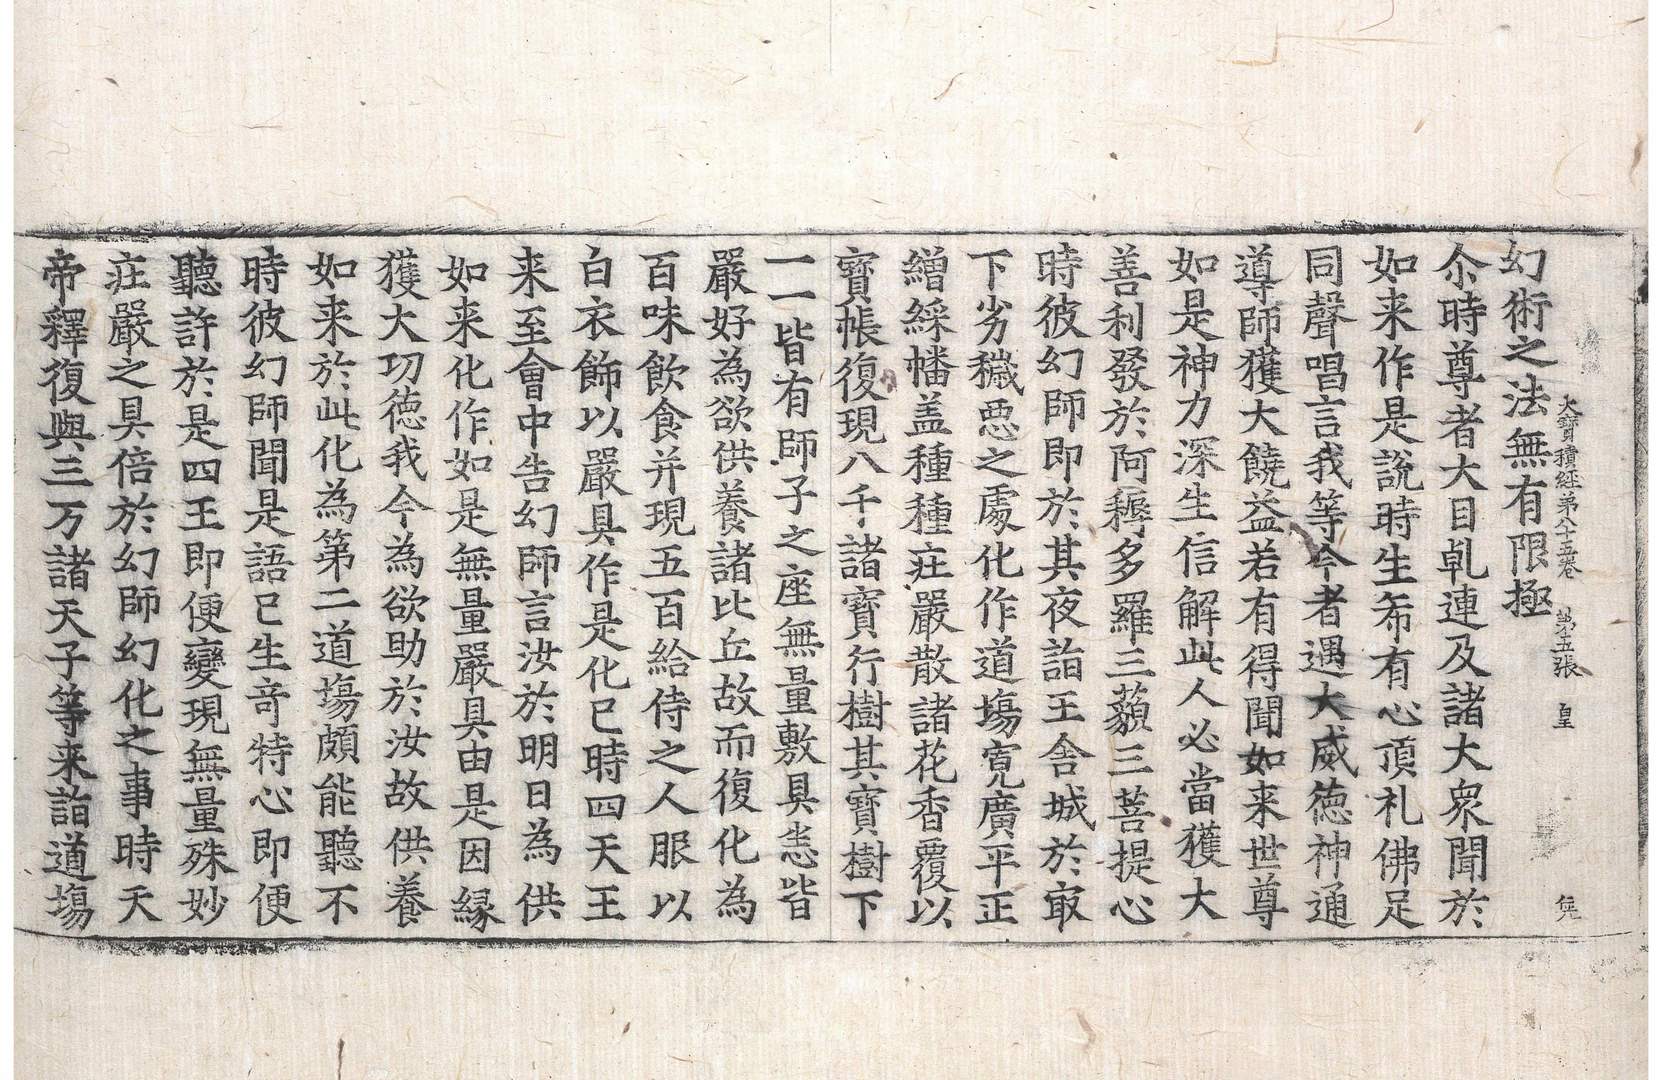 幻術之法無有限極
大寶積經第八十五卷 第五張 皇
尒時尊者大目乹連及諸大衆聞於
如来作是說時生希有心頂礼佛足
同聲唱言我等今者遇大威徳神通
導師獲大饒益若有得聞如来世尊
如是神力深生信解此人必當獲大
善利發於阿耨多羅三藐三菩提心
時彼幻師即於其夜詣王舍城於㝡
下劣穢惡之處化作道塲寬廣平正
繒綵幡盖種種莊嚴散諸花香覆以
寶帳復現八千諸寶行樹其寶樹下
一一皆有師子之座無量敷具悉皆
嚴好為欲供養諸比丘故而復化為
百味飲食并現五百給侍之人服以
白衣飾以嚴具作是化已時四天王
来至會中告幻師言汝於明日為供
如来化作如是無量嚴具由是因縁
獲大功徳我今為欲助於汝故供養
如来於此化為第二道塲頗能聽不
時彼幻師聞是語已生竒特心即便
聽許於是四王即便變現無量殊妙
莊嚴之具倍於幻師幻化之事時天
帝釋復與三万諸天子等来詣道塲